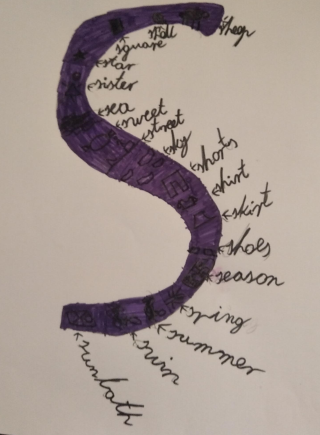 sheep
stall
square
star
sister
sea
sweet
street
sky
shorts
shirt
skirt
shoes
season
spring
summer
swim
sunbath